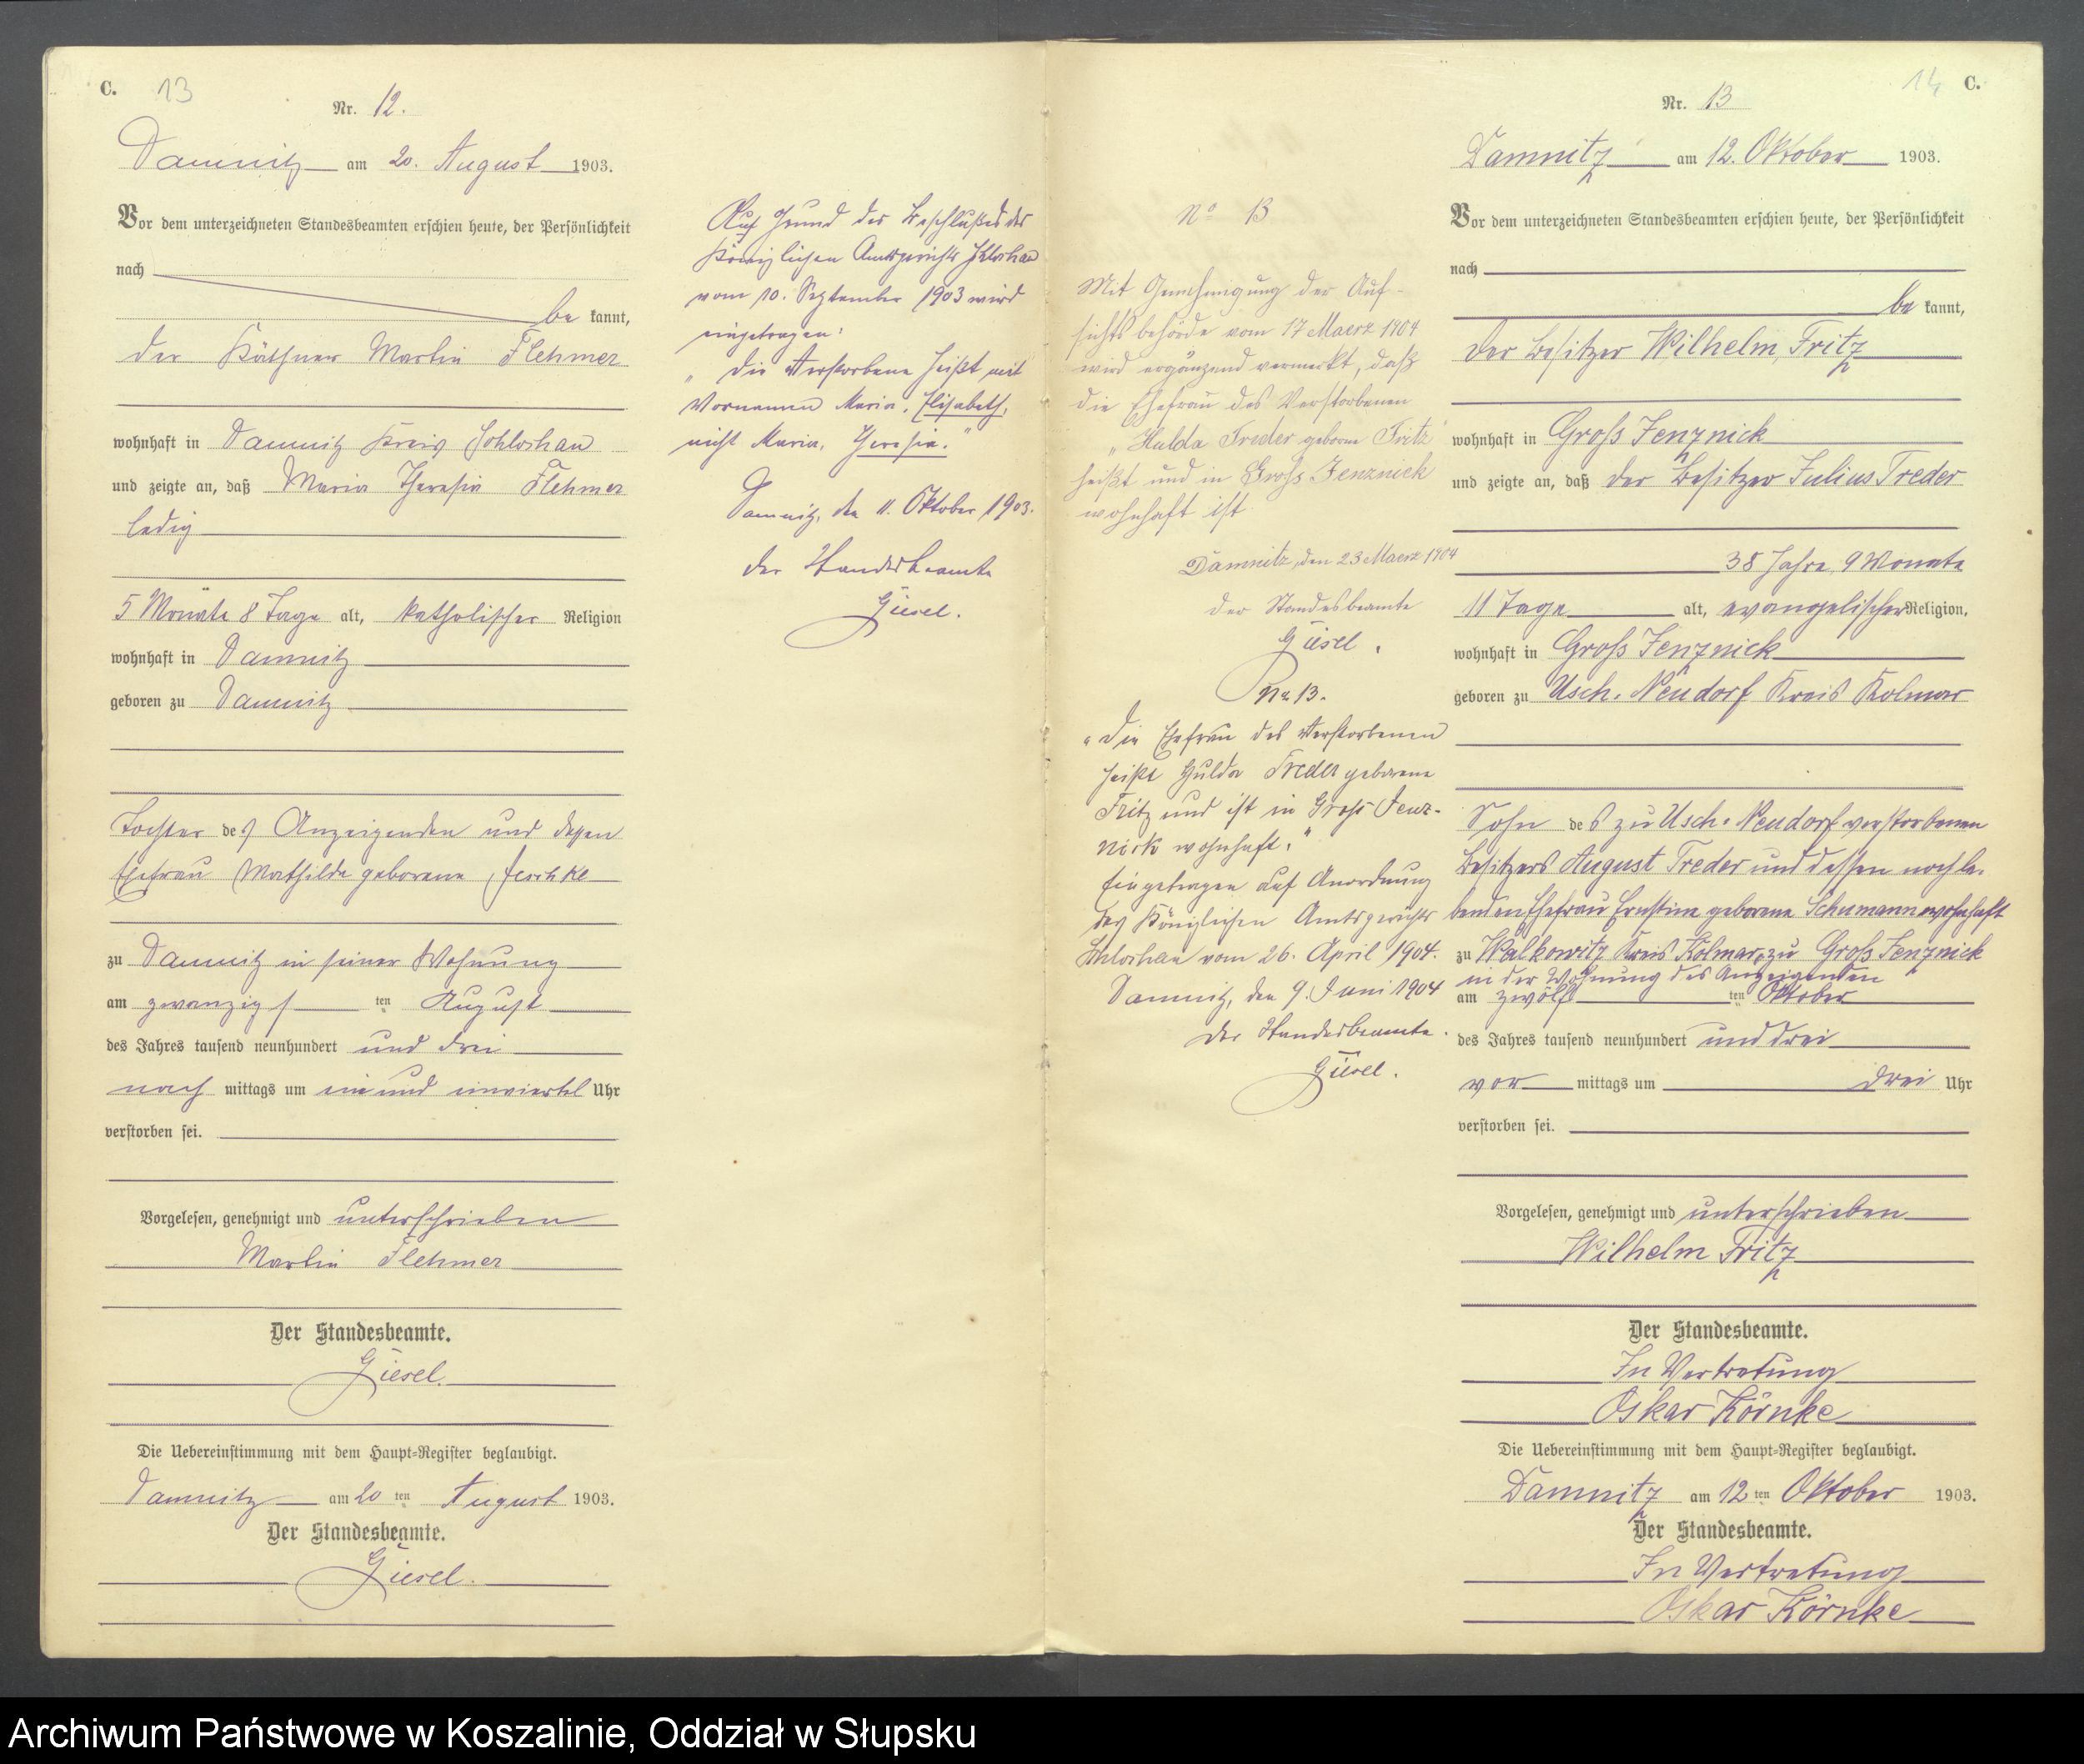 C. 13
Nr. 12.
Damnitz am 20. August 1903.
Vor dem unterzeichneten Standesbeamten erschien heute, der Persönlichkeit
nach
be kannt,
der Käthner Martin Flehmer
wohnhaft in Damnitz Kreis Schlochau
und zeigte an, daß Maria Theresia Flehmer
ledig
5 Monate 8 Tage alt, katholischer Religion
wohnhaft in Damnitz
geboren zu Damnitz
Tochter des Anzeigenden und dessen
Ehefrau Mathilde geborene Jeschke
zu Damnitz in seiner Wohnung
am zwanzigsten August
des Jahres tausend neunhundert und drei
nach mittags um ein und einviertel Uhr
verstorben sei.
Vorgelesen, genehmigt und unterschrieben
Martin Flehmer
Der Standesbeamte.
Giesel.
Die Uebereinstimmung mit dem Haupt-Register beglaubigt.
Damnitz am 20 ten August 1903.
Der Standesbeamte.
Giesel.
Auf Grund des Beschlußes des
Königlichen Amtsgerichts Schlochau
vom 10. September 1903 wird
eingetragen:
„Die Verstorbene heißt mit
Vornamen Maria, Elisabeth,
nicht Maria, Theresia."
Damnitz, den 11. Oktober 1903.
Der Standesbeamte
Giesel.
No 13
Mit Genehmigung der Auf-
sichtsbehörde vom 17 Maerz 1904
wird ergänzend vermerkt, daß
die Ehefrau des Verstorbenen
„Hulda Treder geborne Fritz"
heißt und in Gross Jenznick
wohnhaft ist
Damnitz, den 23 Maerz 1904
Der Standesbeamte
Giesel.
No 13.
„Die Ehefrau des Verstorbenen
heißt Hulda Treder geborene
Fritz und ist in Gross Jenz-
nick wohnhaft."
Eingetragen auf Anordnung
des Königlichen Amtsgerichts
Schlochau vom 26. April 1904.
Damnitz, den 9. Juni 1904
Der Standesbeamte.
Giesel.
14 C.
Nr. 13
Damnitz am 12. Oktober 1903.
Vor dem unterzeichneten Standesbeamten erschien heute, der Persönlichkeit
nach
be kannt,
der Besitzer Wilhelm Fritz
wohnhaft in Groß Jenznick
und zeigte an, daß der Besitzer Julius Treder
38 Jahre, 9 Monate
11 Tage alt, evangelischer Religion,
wohnhaft in Groß Jenznick
geboren zu Usch-Neudorf Kreis Kolmar
Sohn des zu Usch-Neudorf verstorbenen
Besitzers August Treder und dessen noch le-
benden Ehefrau Ernstine geborene Schumann wohnhaft
zu Walkowitz Kreis Kolmar, zu Groß Jenznick
in der Wohnung des Anzeigenden
am zwölf ten Oktober
des Jahres tausend neunhundert und drei
vor mittags um drei Uhr
verstorben sei.
Vorgelesen, genehmigt und unterschrieben
Wilhelm Fritz
Der Standesbeamte.
In Vertretung
Oskar Körnke
Die Uebereinstimmung mit dem Haupt-Register beglaubigt.
Damnitz am 12 ten Oktober 1903.
Der Standesbeamte.
In Vertretung
Oskar Körnke
Archiwum Państwowe w Koszalinie, Oddział w Słupsku